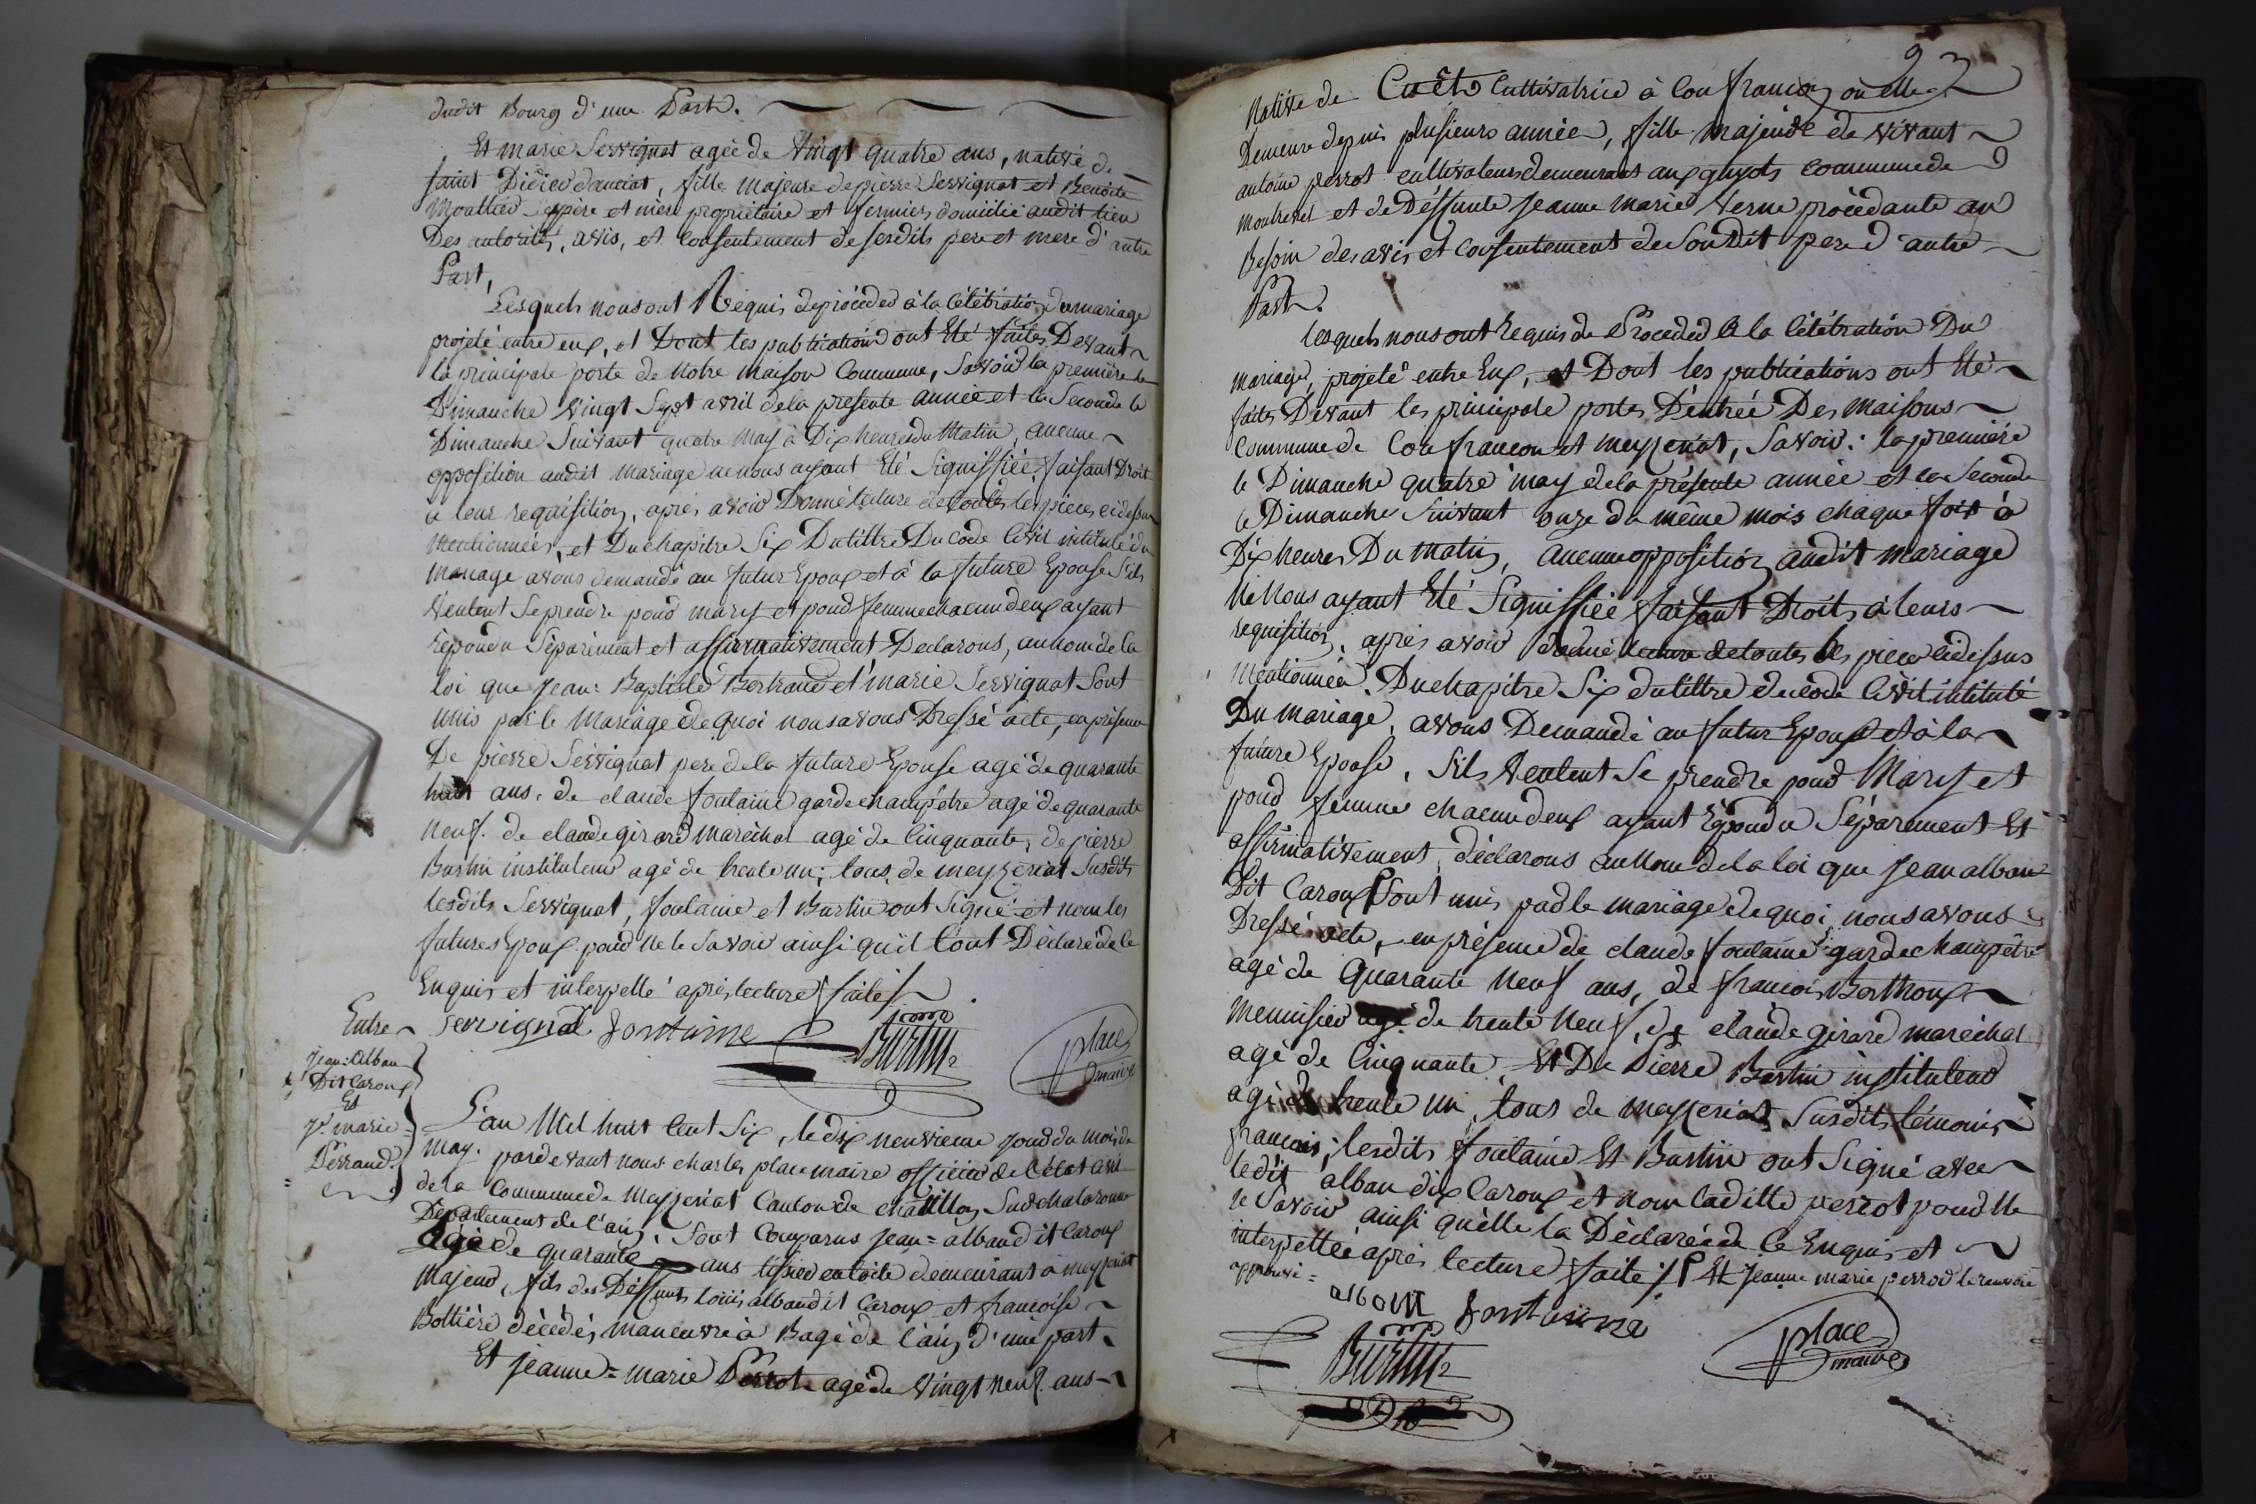 dudit Bourg d'une Part.
Et marie Servignat agée de Vingt quatre ans, native de
saint Didier d'auciat, fille majeure de pierre Servignat et Benoite
Moallier ses père et mère propriétaire et fermiers domicilié audit lieu
Des autorités, avis, et Consentement de sesdits pere et mere d'autre
Part,
Lesquels nous ont Réquis de procéder à la Célébration du mariage
projeté entre eux, et Dont les publications ont Eté faites Devant
la principale porte de Notre Maison Commune, Savoir la première le
Dimanche Vingt Sept avril de la présente année et la Seconde le
Dimanche Suivant quatre May à Dix heures du Matin, aucune
opposition audit mariage ne nous ayant Eté Signiffiée, faisant Droit
a leur requisition, après avoir Donné lecture de toutes les pièces cidessus
Mentionnées, et Du chapitre Six Du tittre Du Code Civil intitulé du
Mariage avons demandé au futur Epoux et à la future Epouse S'ils
Veulent Se prendre pour mary et pour femme chacun deux ayant
répondu Séparément et affirmativement Declarons, au nom de la
loi que Jean: Baptiste Bertrand et marie Servignat Sont
Unis par le Mariage de quoi nous avons Dressé acte, en présence
De pierre Servignat pere de la future Epouse agé de quarante
huit ans, de claude fontaine garde champêtre agé de quarante
Neuf. de claude girard maréchal agé de Cinquante, de pierre
Burtin instituteur agé de trente un; tous de meyzeriat Susdits
lesdits Servignat, fontaine et Burtin ont Signé et non les
futures Epoux pour Ne le Savoir ainsi qu'il l'ont Déclaré de ce
Enquis et interpellé après lecture faite
servignat fontaine
Burtin
place
maire
Entre
Jean: Alban
Dit Caroux
Et
Je. marie
Perraud
L'an Mil huit Cent Six, le dix neuvieme jour du mois de
May. pardevant nous charles place maire officier de l'état civil
de la Commune de Meyzeriat Canton de chatillon Sur chalaronne
Département de l'ain, Sont Comparus Jean = alban dit Caroux
Agé de quarante ans tissier en toile demeurant à meyzeriat
Majeur, fils des Déffunts Louis alban dit Caroux et françoise
Bottière décédés manoeuvre à Bagé de l'ain, d'une part
Et Jeanne = marie Perrot agée de Vingt neuf ans
93
Native de Cuet Cultivatrice à Confrançon où elle
Demeure depuis plusieurs année, fille majeure de vivant
antoine perrot cultivateur demeurant aux guyots commune de
montrevel et de Déffunte Jeanne Marie Verne procédante au
Besoin des avis et Consentement de Son Dit pere d'autre
Part.
lesquels nous ont Requis de Proceder à la Célébration Du
mariage, projeté entre Eux, et Dont les publications ont Eté
faites Devant les principale portes D'entrée Des Maisons
Commune de Confrançon et meyzeriat, Savoir: la première
le Dimanche quatre may de la présente année et la Seconde
le Dimanche Suivant onze du même mois chaque fois à
Dix heures Du Matin, aucune opposition audit mariage
Ne Nous ayant Eté Signiffiée faisant Droit, à leurs
requisition, après avoir donné lecture de toutes les pièces cidessus
Mentionnées, Du chapitre Six du tittre du code Civil intitulé
Du mariage, avons Demandé au futur Epoux et à la
future Epouse, S'ils Veulent Se prendre pour Mary et
pour femme chacun deux ayant Répondu Séparement Et
affirmativement, déclarons au Nom de la loi que Jean alban
Dit Caroux Sont unis par le mariage de quoi nous avons
Dressé acte, en présence de claude fontaine garde champêtre
agé de Quarante Neuf ans, de francois Berthoux
Menuisier agé de trente Neuf, de claude girard maréchal
agé de Cinquante, Et De Pierre Burtin instituteur
agé de trente un, tous de meyzeriat Susdits témoins
francois; lesdits fontaine Et Burtin ont Signé avec
ledit alban dix Caroux et non ladille perrot pour Ne
le Savoir ainsi qu'elle la Déclaré de Ce Enquis et
interpellée après lecture faite Et Jeanne marie perrod le renvoie
approuvé =
alban fontaine
Burtin
place
maire